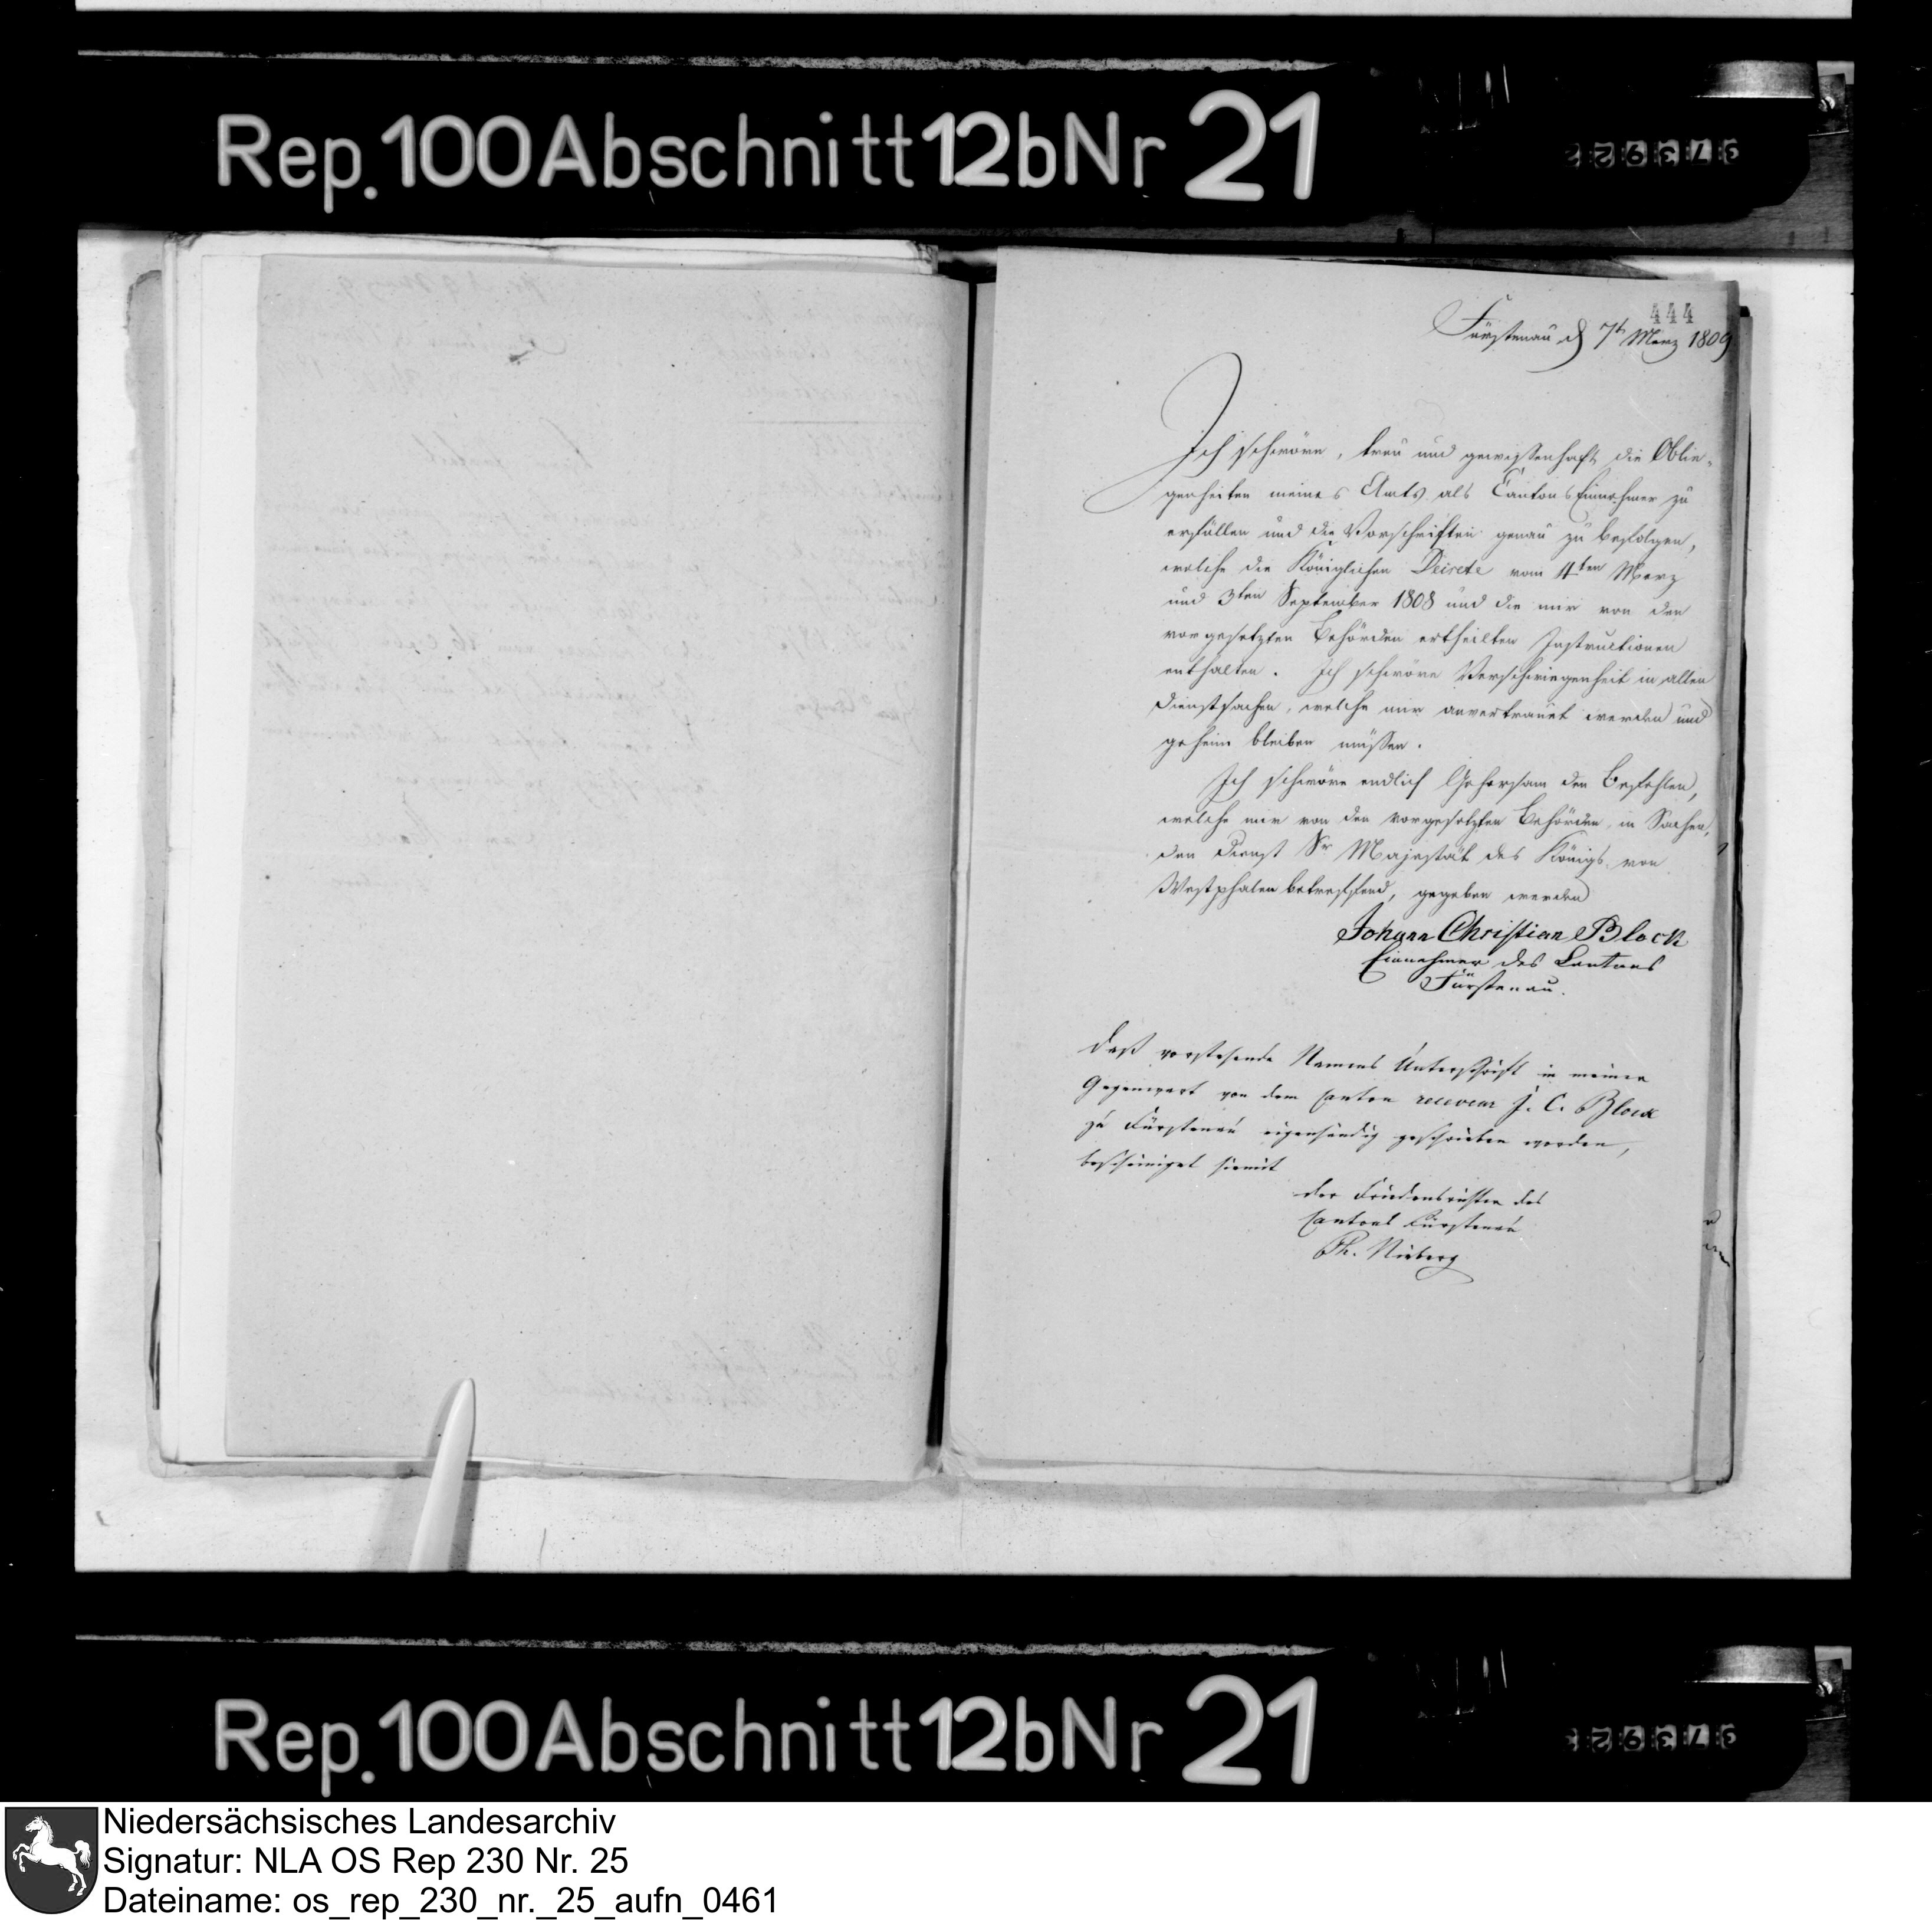 Rep. 100 Abschnitt 12b Nr 21
444
Fürstenau d 7t Merz 1809
Ich schwöre, treu und gewissenhaft die Oblie-
genheiten meines Amts als Cantons Einnehmer zu
erfüllen und die Vorschriften genau zu befolgen,
welche die Königlichen Decrete vom 11ten Merz
und 3ten September 1808 und die mir von den
vorgesetzten Behörden ertheilten Instructionen
enthalten. Ich schwöre Verschwiegenheit in allen
Dienstsachen, welche mir anvertrauet werden und
geheim bleiben müssen.
Ich schwöre endlich Gehorsam den Befehlen,
welche mir von den vorgesetzten Behörden in Sachen,
den Dienst Sr Majestät des Königs von
Westphalen betreffend, gegeben werden
Johann Christian Block
Einnehmer des Cantons
Fürstenau.
Daß vorstehende Namens Unterschrift in meiner
Gegenwart von dem Canton receveur J. C. Block
zu Fürstenau eigenhändig geschrieben worden,
bescheiniget hiemit
der Friedensrichter des
Cantons Fürstenau
Th. Nieberg
Rep. 100 Abschnitt 12b Nr 21
Niedersächsisches Landesarchiv
Signatur: NLA OS Rep 230 Nr. 25
Dateiname: os_rep_230_nr._25_aufn_0461